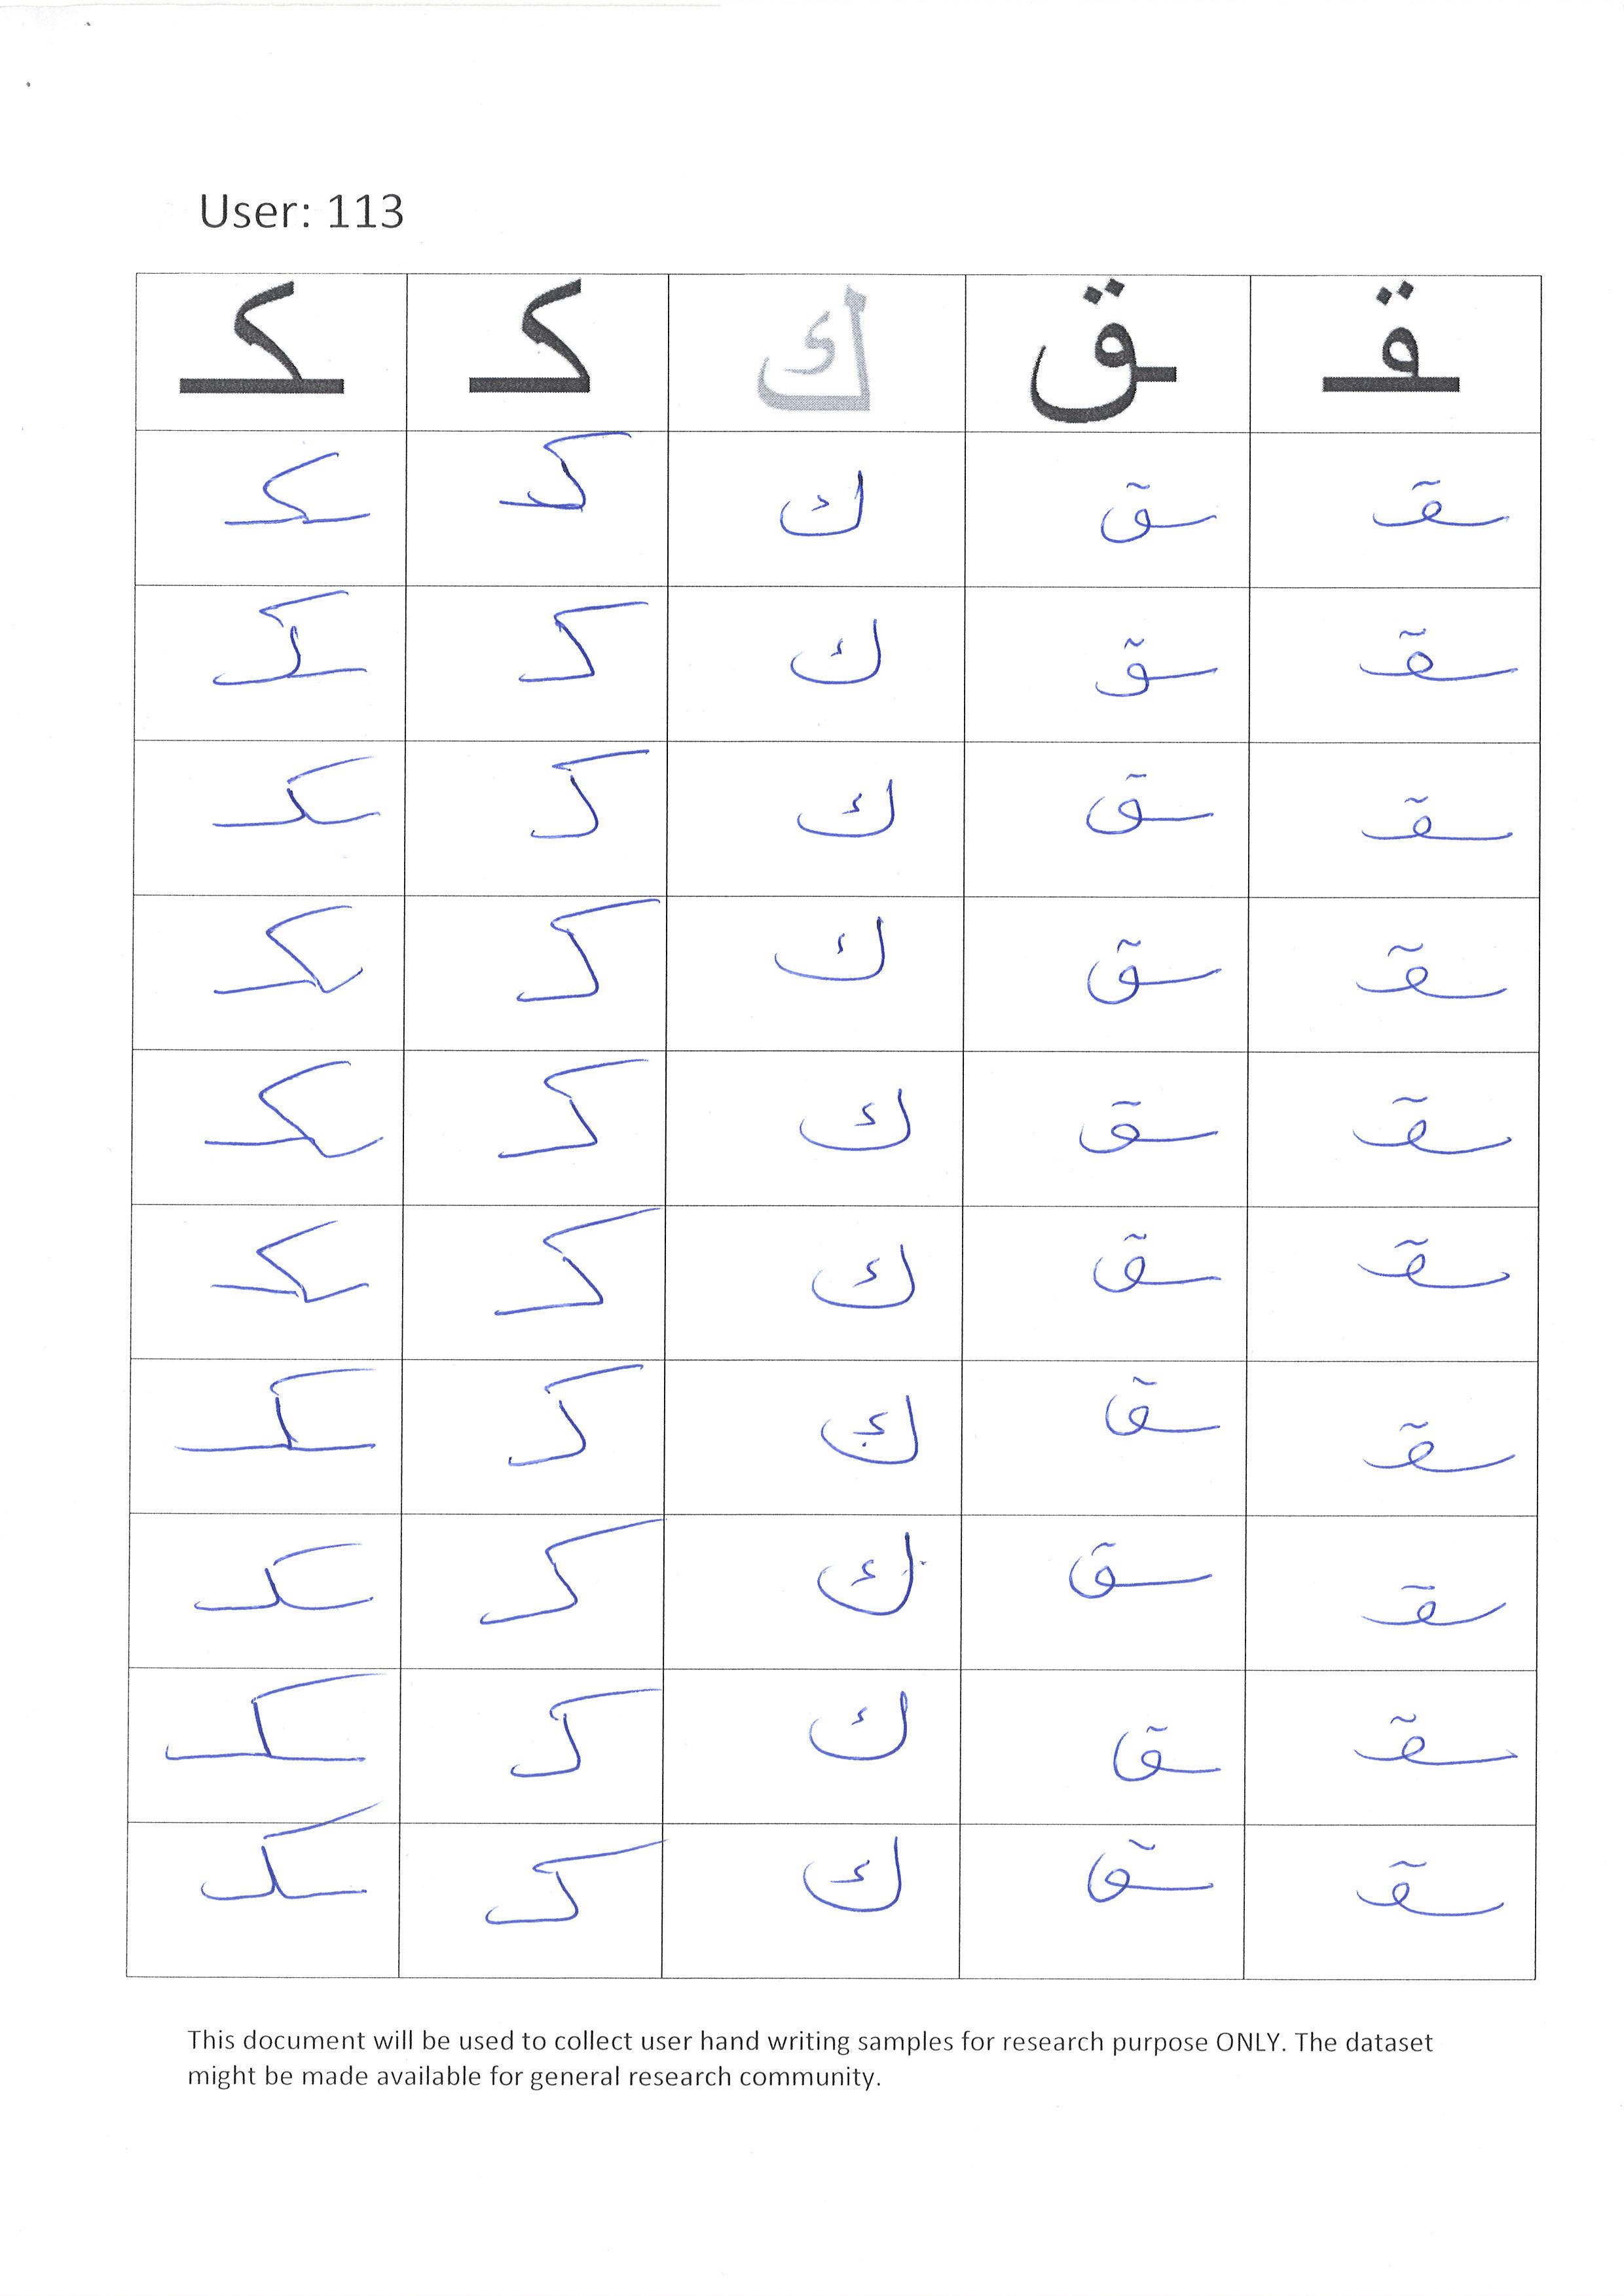 User: 113
ـقـ ـق ك كـ ـكـ
ـقـ ـق ك كـ ـكـ
ـقـ ـق ك كـ ـكـ
ـقـ ـق ك كـ ـكـ
ـقـ ـق ك كـ ـكـ
ـقـ ـق ك كـ ـكـ
ـقـ ـق ك كـ ـكـ
ـقـ ـق ك كـ ـكـ
ـقـ ـق ك كـ ـكـ
ـقـ ـق ك كـ ـكـ
ـقـ ـق ك كـ ـكـ
This document will be used to collect user hand writing samples for research purpose ONLY. The dataset
might be made available for general research community.